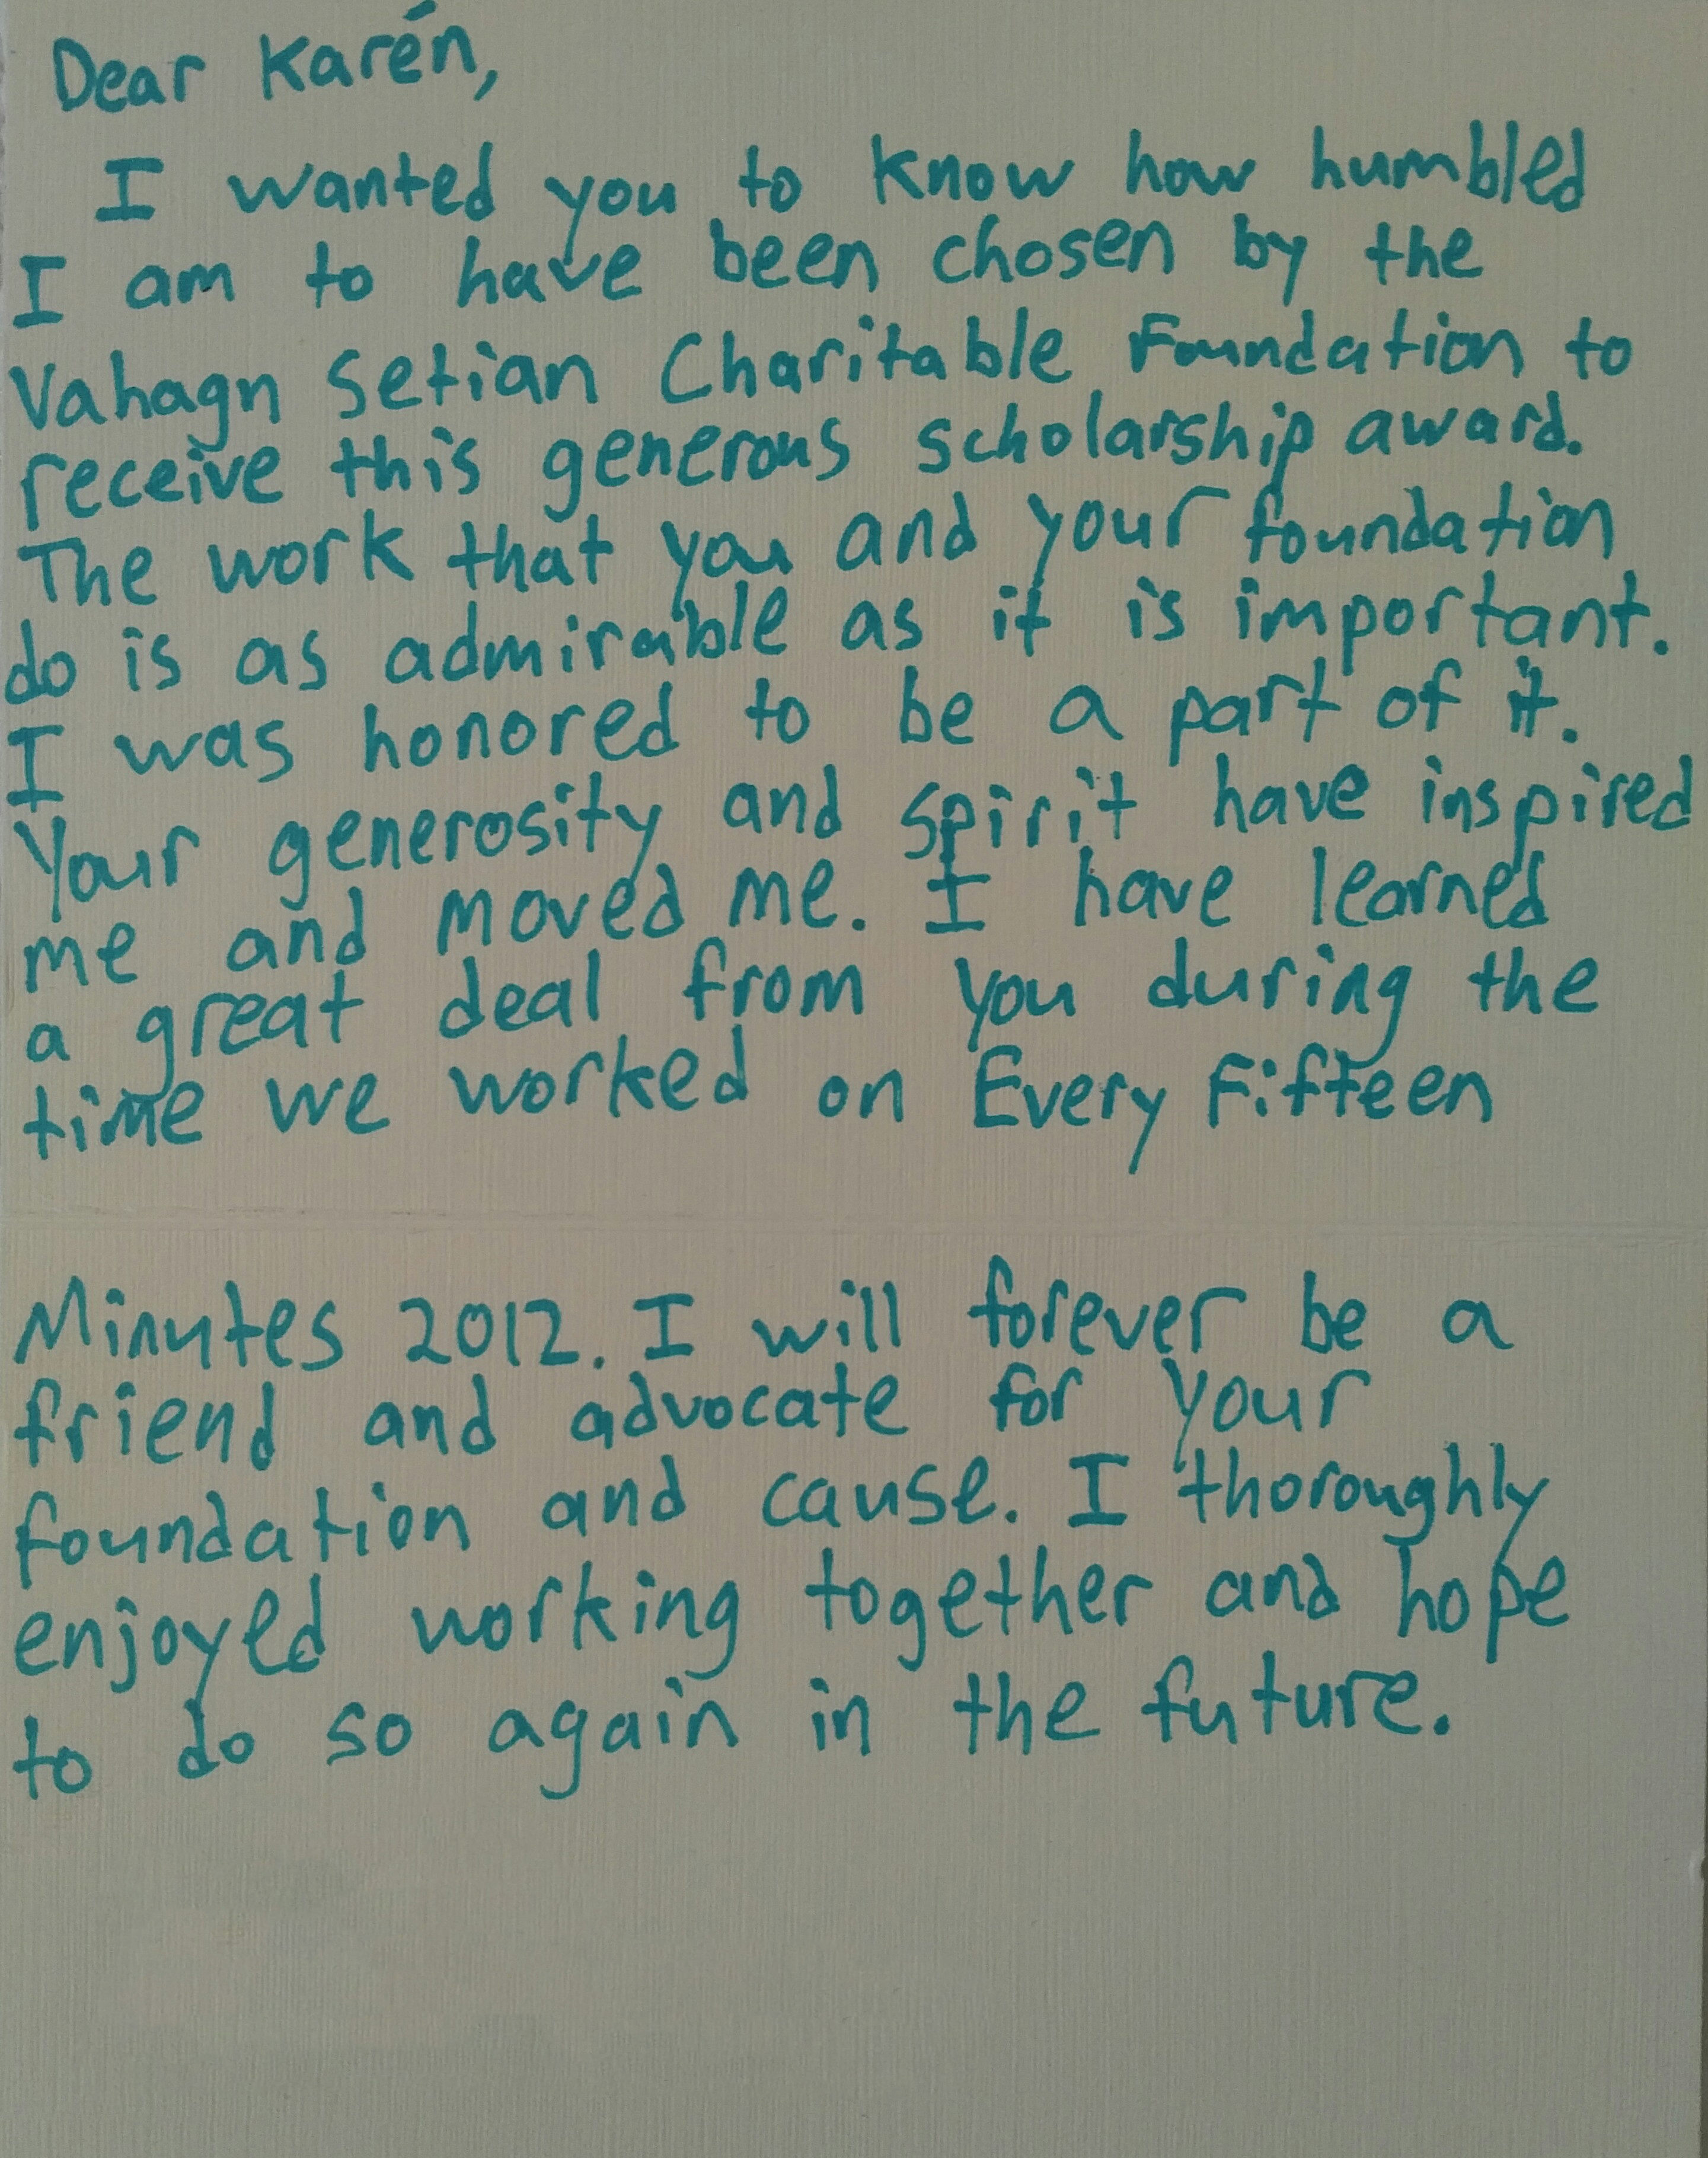 Dear Karén,
I wanted you to know how humbled
I am to have been chosen by the
Vahagn Setian Charitable Foundation to
receive this generous scholarship award.
The work that you and your foundation
do is as admirable as it is important.
I was honored to be a part of it.
Your generosity and spirit have inspired
me and moved me. I have learned
a great deal from you during the
time we worked on Every Fifteen
Minutes 2012. I will forever be a
friend and advocate for your
foundation and cause. I thoroughly
enjoyed working together and hope
to do so again in the future.